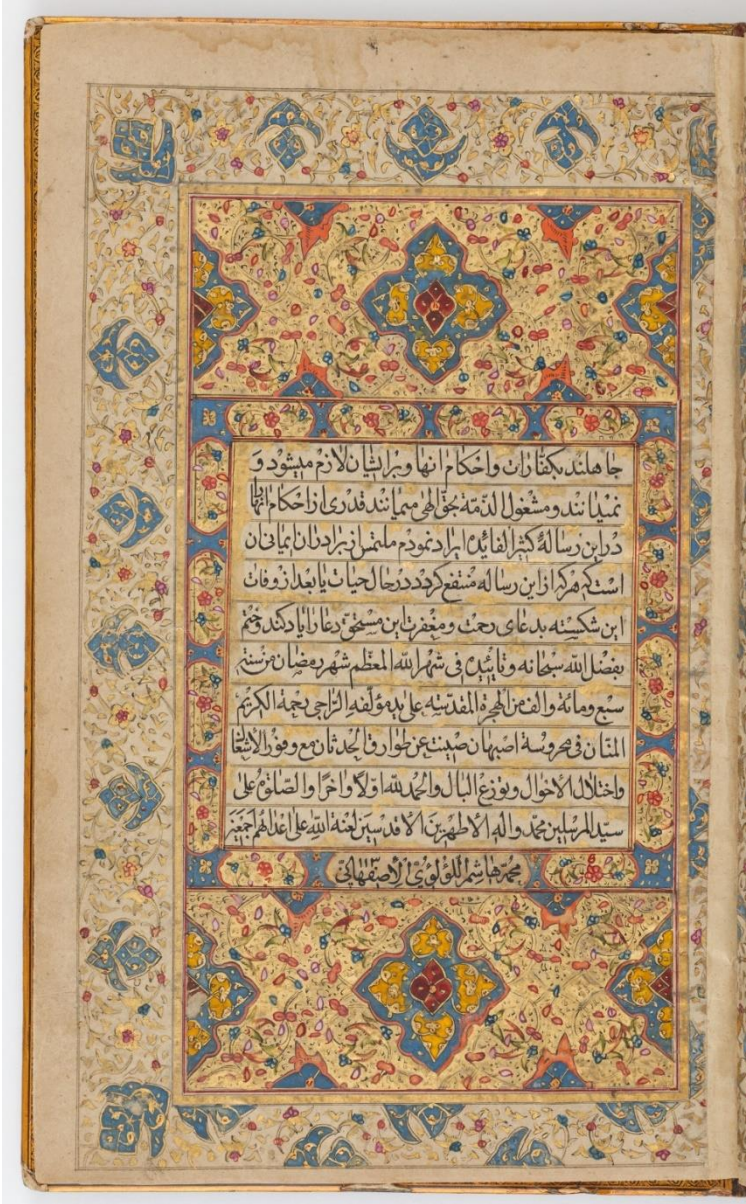 جاهلند بکفّارات و احکام انها و بر ایشان لازم میشود و
نمیدانند و مشغول الذّمّه بحقّ الهی میمانند قدری از احکام انها را
در این رسالهٔ کثیر الفایده ایراد نمودم ملتمس از برادران ایمانی ان
است که هر که از این رساله منتفع کردد در حال حیات یا بعد از وفات
این شکسته بدعای رحمت و مغفرت این مستحقّ دعا را یاد کند و ختم
بفضل الله سبحانه و تائیده فی شهر الله المعظّم شهر رمضان من سنه
سبع و مائة و الف من الهجرة المقدّسة علی ید مؤلّفه الرّاجی رحمة الکریم
المنّان فی محروسة اصبهان صینت عن طوارق الحدثان مع وفور الاشغال
و اختلال الاحوال و توزع البال و الحمد لله اوّلا و اخرا و الصّلوة علی
سیّد المرسلین محمّد و اله الاطهرین الاقدسین لعنة الله علی اعدائهم اجمعین
محمّد هاشم اللؤلؤی الاصفهانی